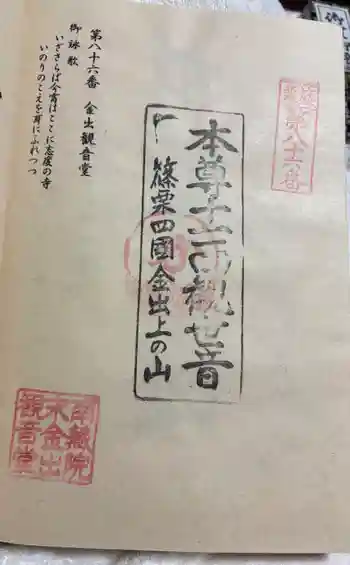 第八十六番
本尊十一面観世音
篠栗四國金出上の山
第八十六番　金出観音堂
御詠歌
いざさらば今宵はここに志度の寺
いのりのこえを耳にふれつつ
金出
観音堂